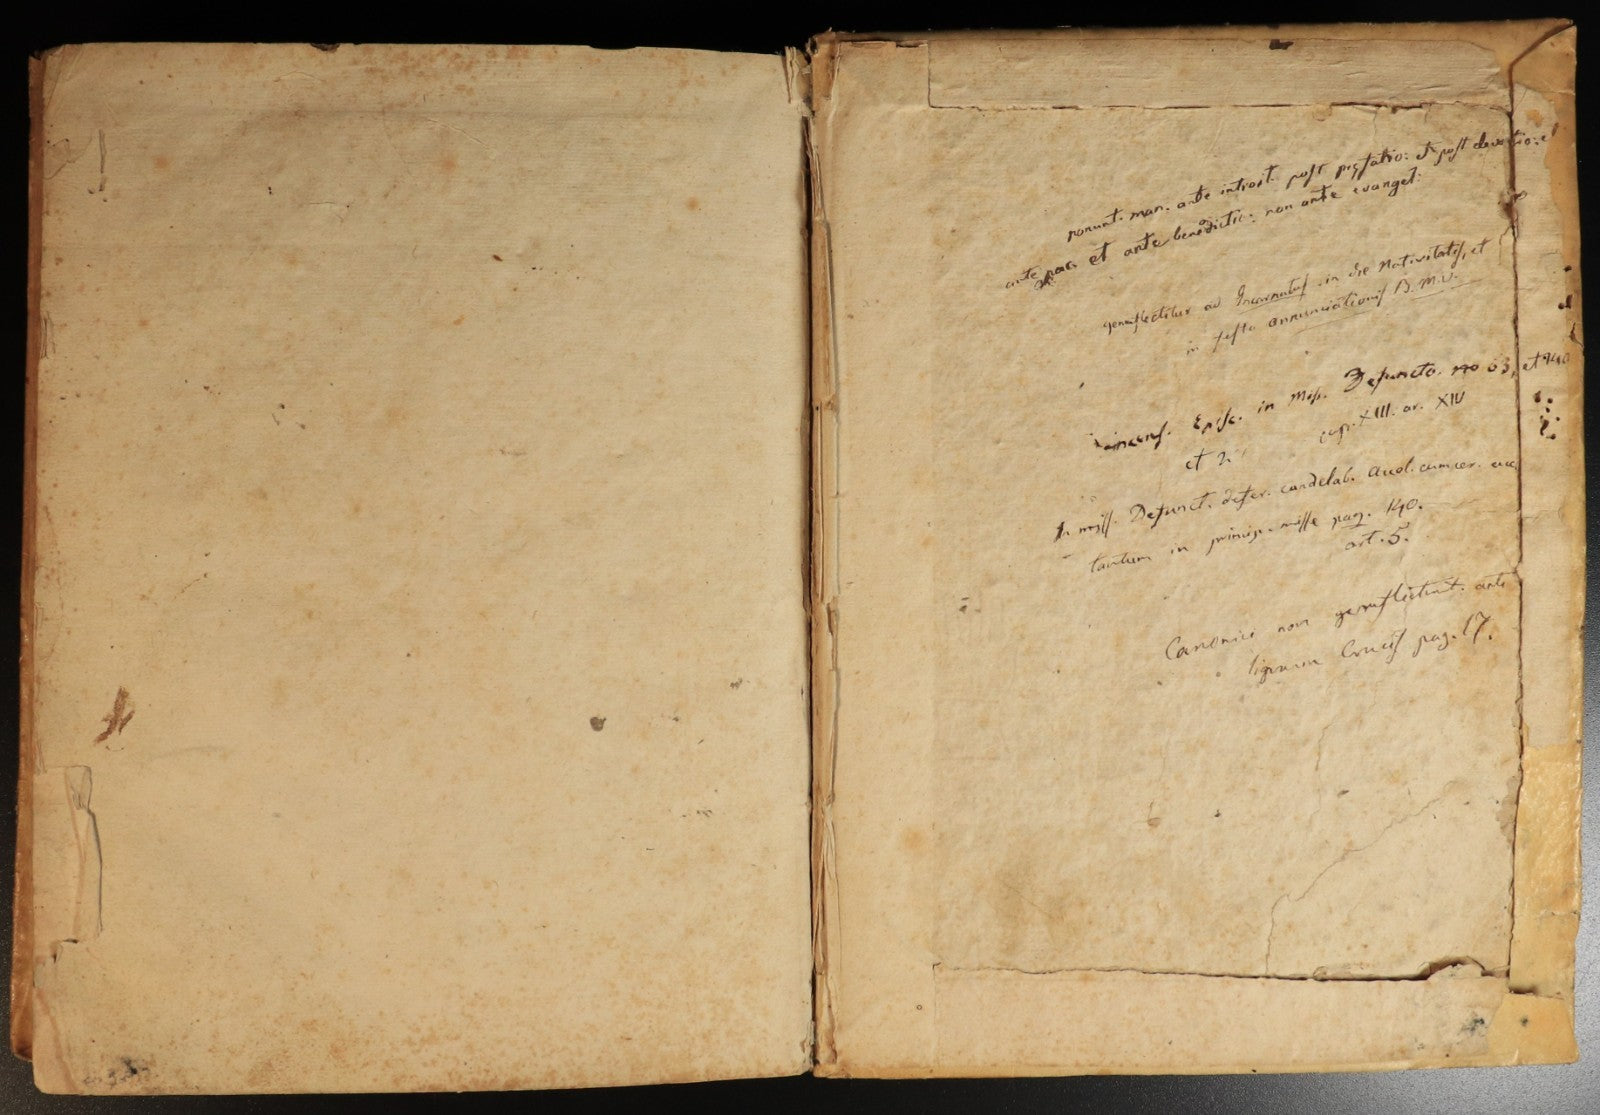 ponunt. man. ante introit. post et post
ante pac. et ante benedictio: non ante evangel:
genuflectitur ad Incarnatus in die Nativitatis, et
in festo annunciationis B. M. V.
incens. Episc. in Miss. Defuncto. 63, et 140
et cap. XIII. ar. XIV
In miss. Defunct. defer. candelab. Acol. cum cer.
tantum in princip. misse pag. 140.
art. 5.
Canonici non genuflectunt. ante
lignum Crucis pag. 17.